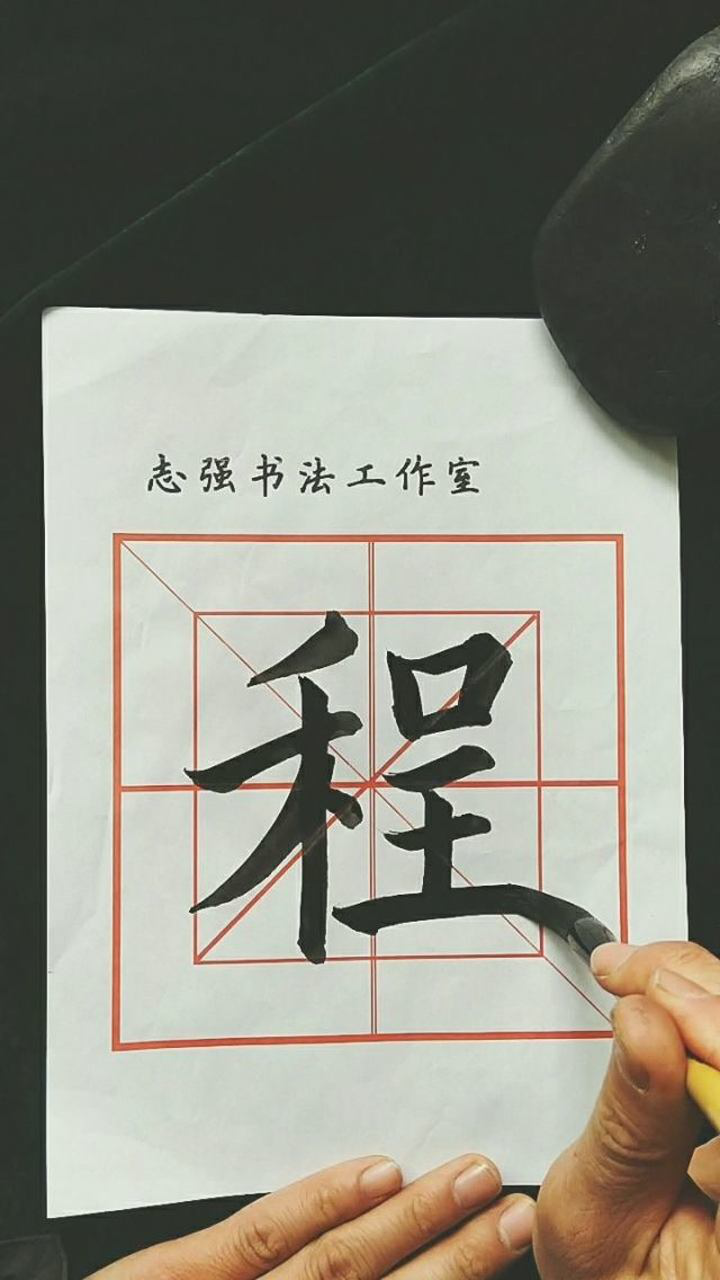 志强书法工作室
程